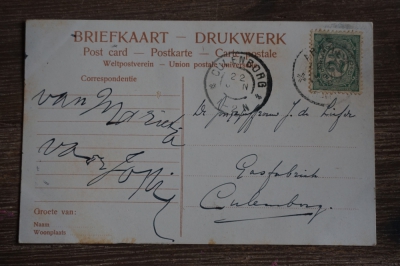 BRIEFKAART — DRUKWERK
Post card — Postkarte — Carte postale
Weltpostverein — Union postale universelle
Correspondentie
van Marietje
voor Jopie
Groete van:
Naam
Woonplaats
CULEMBORG
22
De Jonge Jufvrouw J. de Liefde
Gasfabriek
Culemborg.